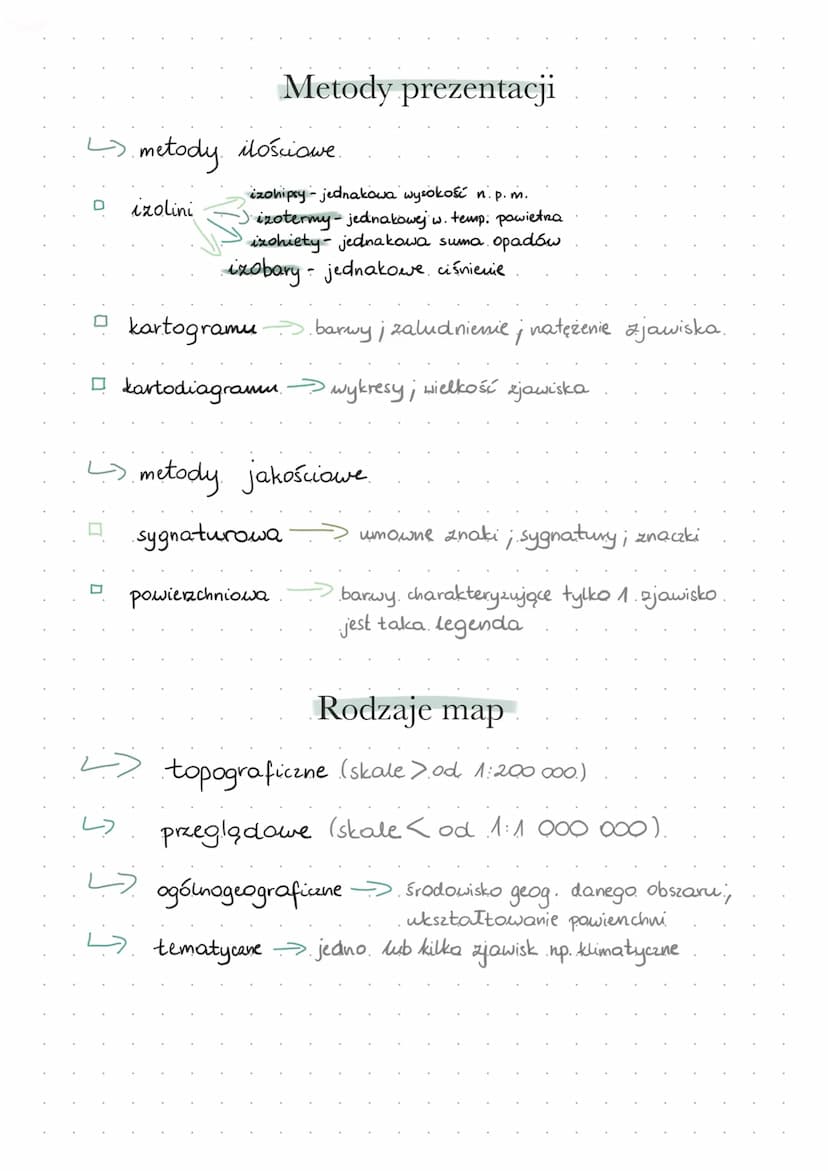 Metody prezentacji
↳ metody ilościowe
izolini
izohipsy - jednakowa wysokość n.p.m.
izotermy - jednakowej w. temp. powietrza
izohiety - jednakowa suma opadów
izobary - jednakowe ciśnienie
kartogramu → barwy ; zaludnienie ; natężenie zjawiska
kartodiagramu → wykresy ; wielkość zjawiska
↳ metody jakościowe
sygnaturowa → umowne znaki ; sygnatury ; znaczki
powierzchniowa → barwy charakteryzujące tylko 1 zjawisko
jest taka legenda
Rodzaje map
↳ topograficzne (skale > od 1:200 000)
↳ przeglądowe (skale < od 1:1 000 000)
↳ ogólnogeograficzne → środowisko geog. danego obszaru ;
ukształtowanie powierzchni
↳ tematyczne → jedno lub kilka zjawisk np. klimatyczne